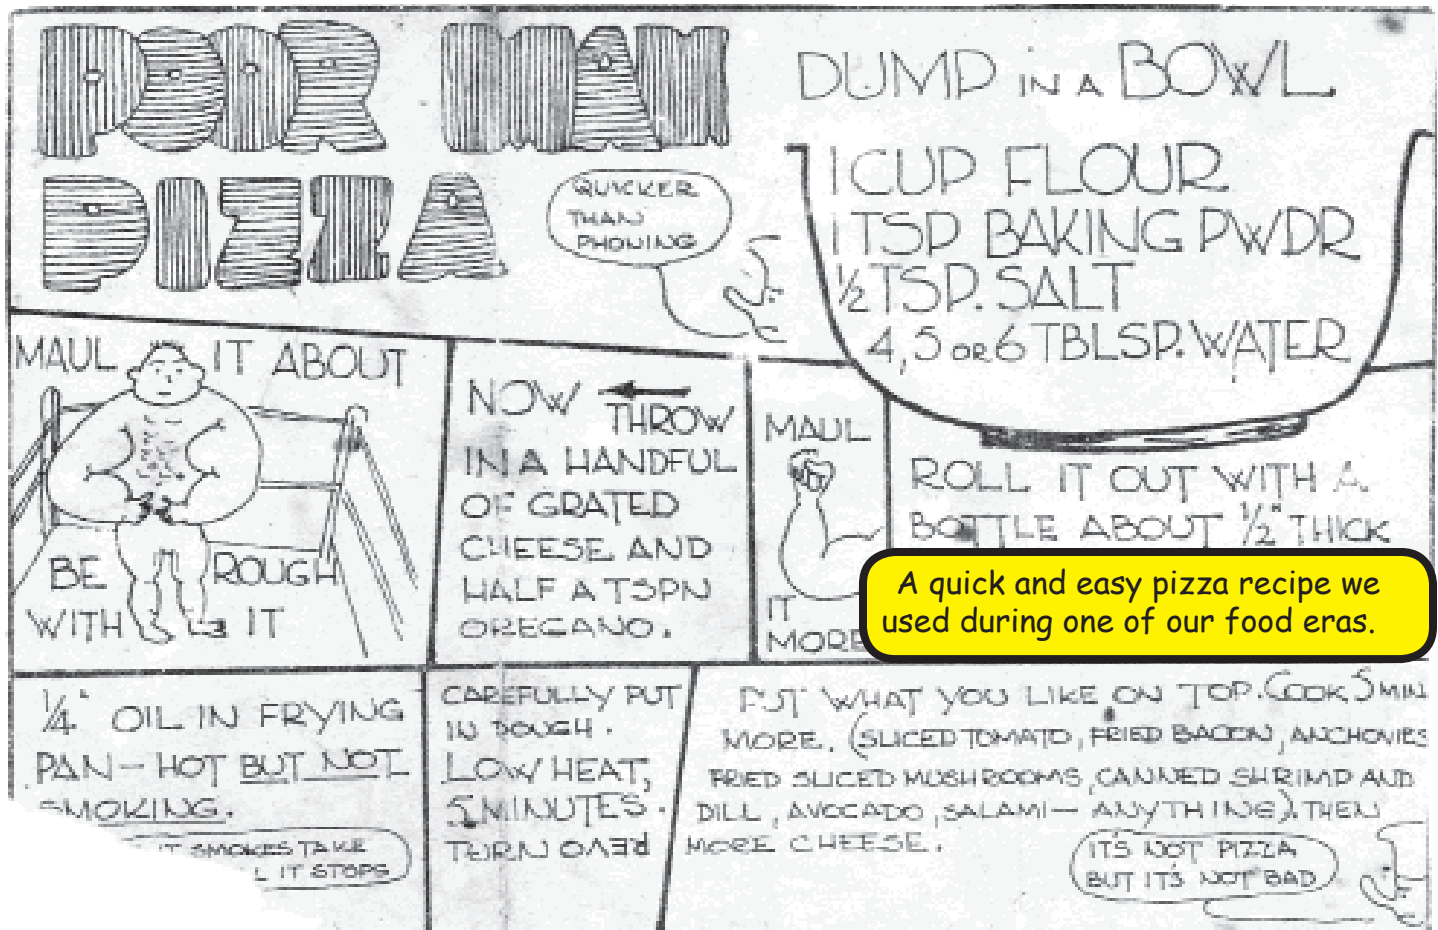 POOR MAN
PIZZA
QUICKER
THAN
PHONING
DUMP IN A BOWL.
1 CUP FLOUR
1 TSP BAKING PWDR
½ TSP. SALT
4, 5 OR 6 TBLSP. WATER
MAUL IT ABOUT
BE ROUGH
WITH IT
NOW
THROW
IN A HANDFUL
OF GRATED
CHEESE AND
HALF A TSPN
OREGANO.
MAUL
IT
MORE
ROLL IT OUT WITH A
BOTTLE ABOUT ½" THICK
A quick and easy pizza recipe we
used during one of our food eras.
¼" OIL IN FRYING
PAN — HOT BUT NOT
SMOKING.
IT SMOKES TAKE
IT STOPS
CAREFULLY PUT
IN DOUGH.
LOW HEAT,
5 MINUTES.
TURN OVER
PUT WHAT YOU LIKE ON TOP. COOK 5 MIN
MORE. (SLICED TOMATO, FRIED BACON, ANCHOVIES
FRIED SLICED MUSHROOMS, CANNED SHRIMP AND
DILL, AVOCADO, SALAMI — ANYTHING). THEN
MORE CHEESE.
IT'S NOT PIZZA
BUT IT'S NOT BAD